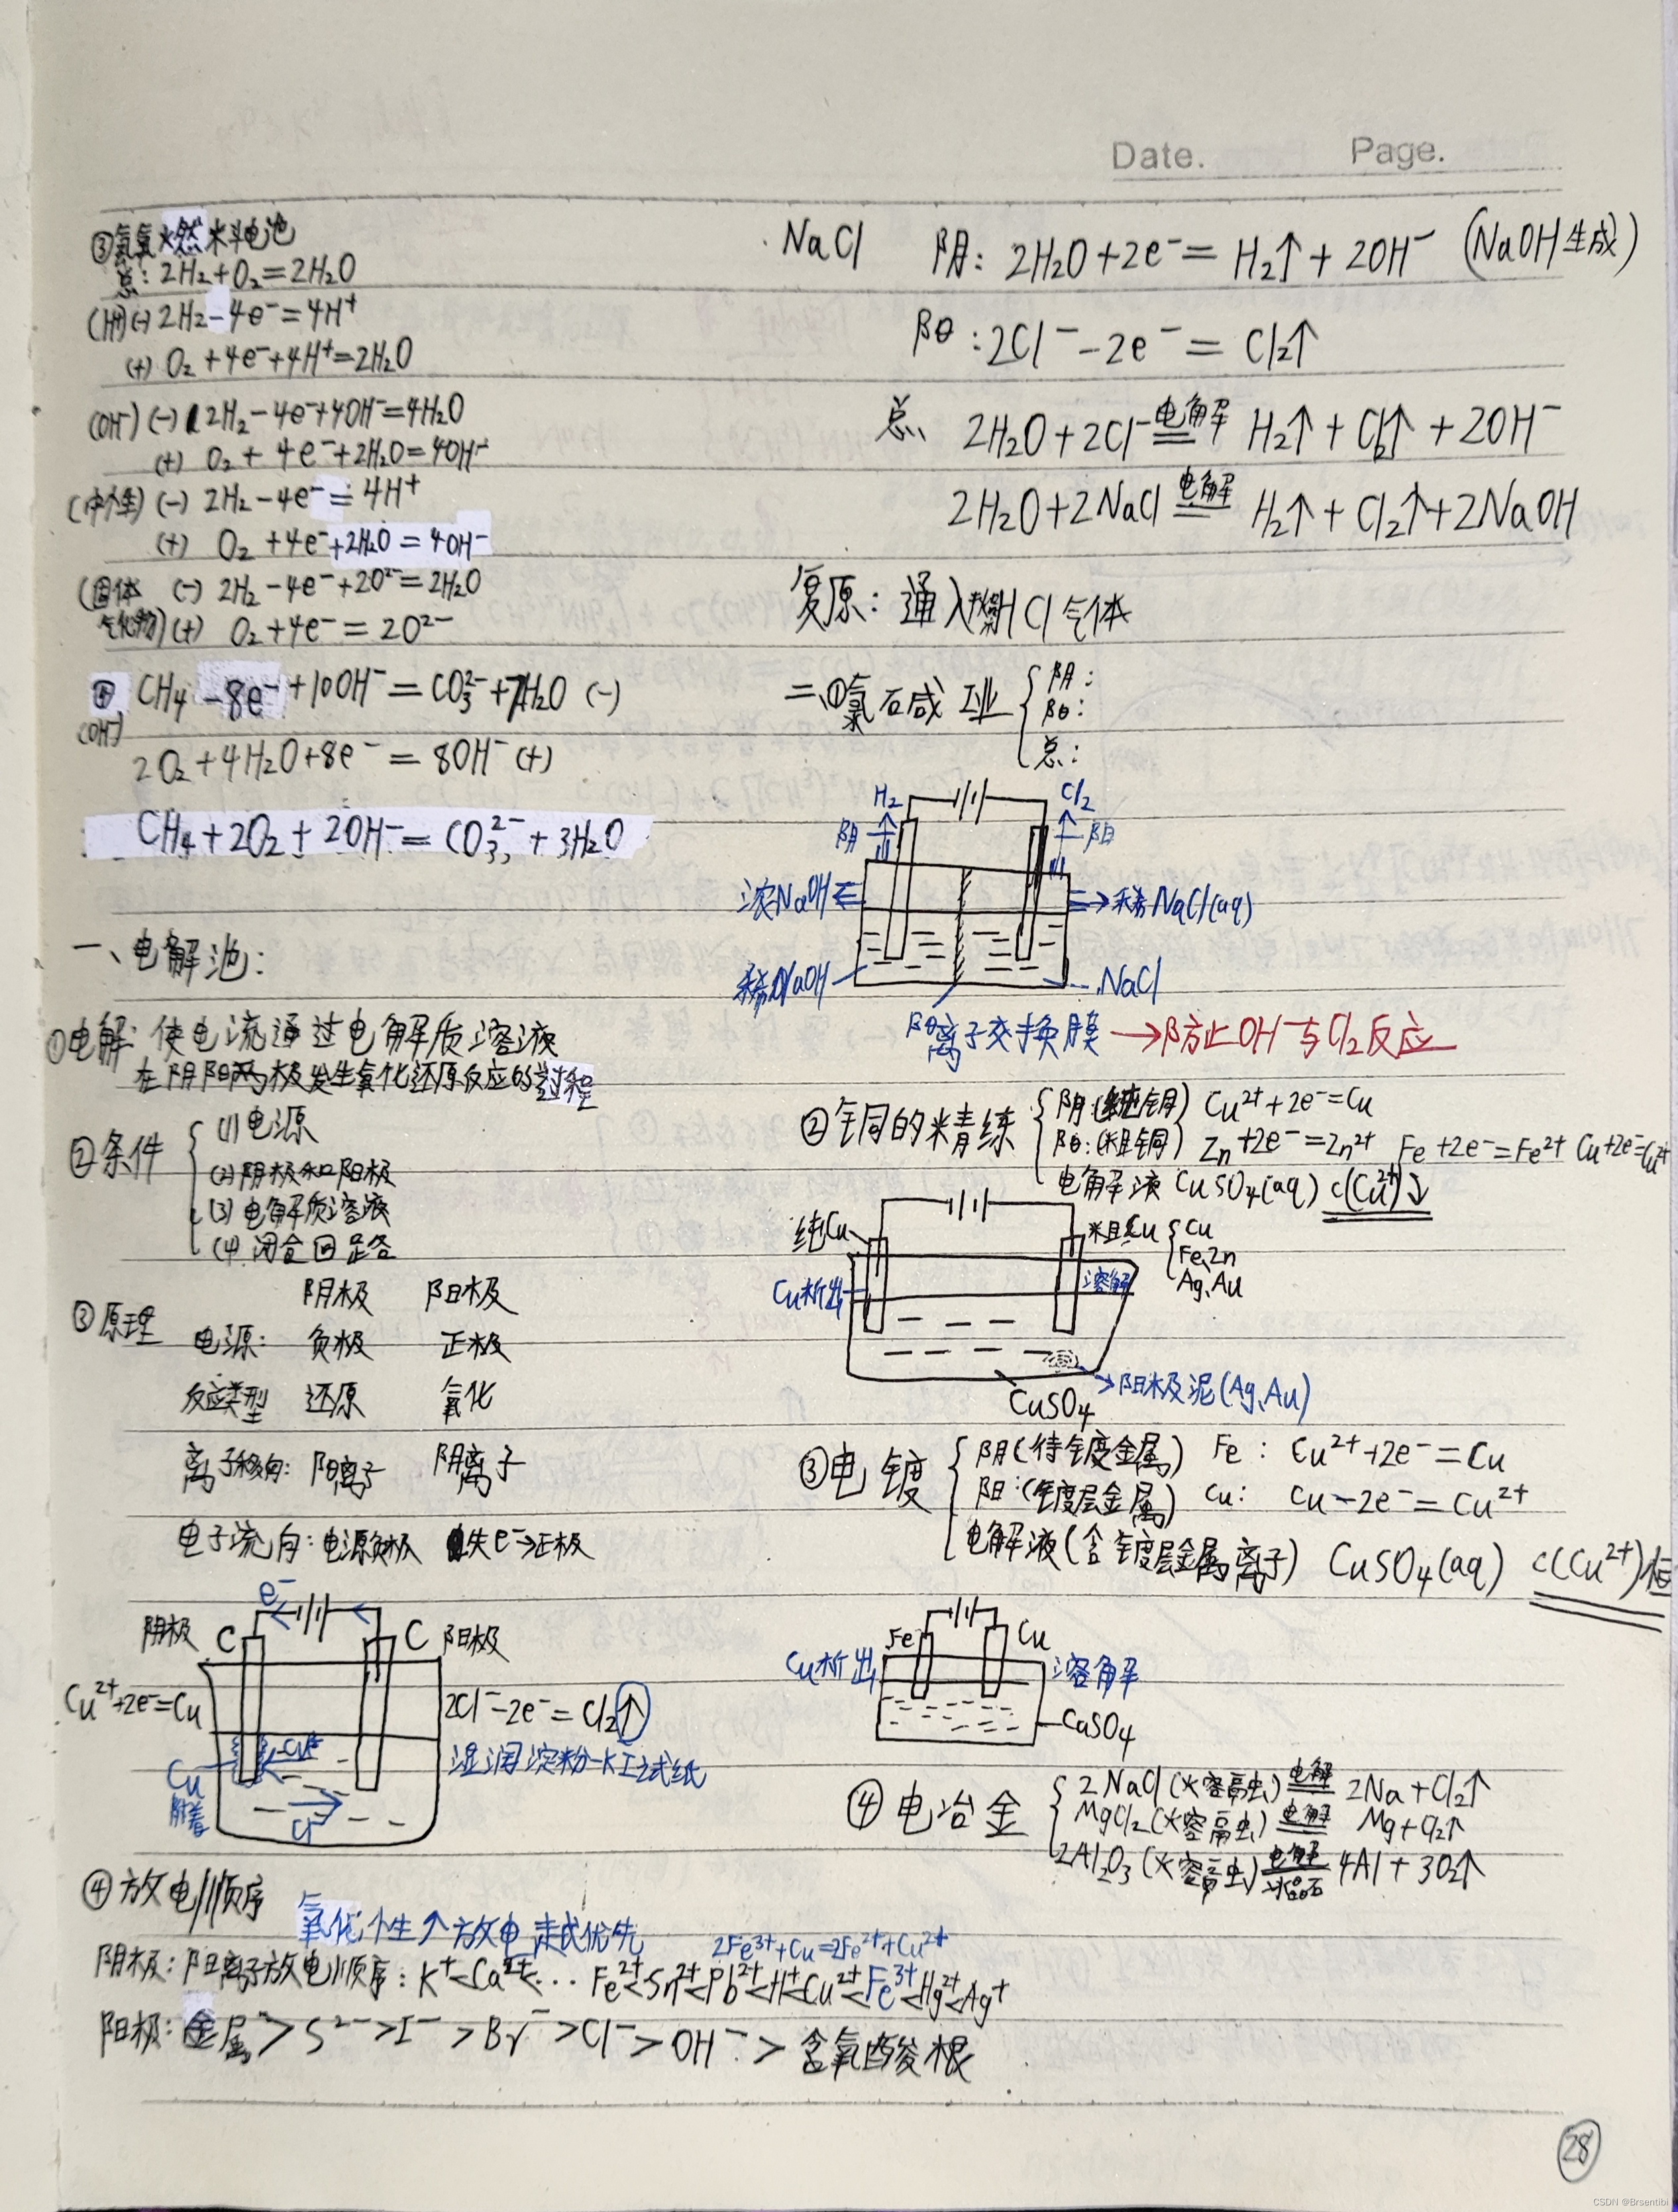 Date. Page.
③氢氧燃料电池
总: 2H₂+O₂=2H₂O
(H⁺)(-) 2H₂-4e⁻=4H⁺
(+) O₂+4e⁻+4H⁺=2H₂O
(OH⁻)(-) 2H₂-4e⁻+4OH⁻=4H₂O
(+) O₂+4e⁻+2H₂O=4OH⁻
(中性)(-) 2H₂-4e⁻=4H⁺
(+) O₂+4e⁻+2H₂O=4OH⁻
(固体氧化物)(-) 2H₂-4e⁻+2O²⁻=2H₂O
(+) O₂+4e⁻=2O²⁻
④(OH⁻) CH₄-8e⁻+10OH⁻=CO₃²⁻+7H₂O (-)
2O₂+4H₂O+8e⁻=8OH⁻ (+)
CH₄+2O₂+2OH⁻=CO₃²⁻+3H₂O
一、电解池:
①电解: 使电流通过电解质溶液
在阴阳两极发生氧化还原反应的过程
②条件
(1)电源
(2)阴极和阳极
(3)电解质溶液
(4)闭合回路
③原理 阴极 阳极
电源: 负极 正极
反应类型 还原 氧化
离子移向: 阳离子 阴离子
电子流向: 电源负极 失e⁻→正极
e⁻
阴极 C C 阳极
Cu²⁺+2e⁻=Cu 2Cl⁻-2e⁻=Cl₂↑
湿润淀粉-KI试纸
Cu²⁺
Cu附着
Cl⁻
④放电顺序
氧化性↑放电越优先
2Fe³⁺+Cu=2Fe²⁺+Cu²⁺
阴极: 阳离子放电顺序: K⁺<Ca²⁺<… Fe²⁺<Sn²⁺<Pb²⁺<H⁺<Cu²⁺<Fe³⁺<Hg²⁺<Ag⁺
阳极: 金属>S²⁻>I⁻>Br⁻>Cl⁻>OH⁻>含氧酸根
NaCl 阴: 2H₂O+2e⁻=H₂↑+2OH⁻ (NaOH生成)
阳: 2Cl⁻-2e⁻=Cl₂↑
总 2H₂O+2Cl⁻ 电解 H₂↑+Cl₂↑+2OH⁻
2H₂O+2NaCl 电解 H₂↑+Cl₂↑+2NaOH
复原: 通入HCl气体
二、①氯碱工业
阴:
阳:
总:
H₂ Cl₂
阴 阳
浓NaOH 稀NaCl(aq)
稀NaOH NaCl
阳离子交换膜→防止OH⁻与Cl₂反应
②铜的精练
阴:(纯铜) Cu²⁺+2e⁻=Cu
阳:(粗铜) Zn+2e⁻=Zn²⁺ Fe+2e⁻=Fe²⁺ Cu+2e⁻=Cu²⁺
电解液 CuSO₄(aq) c(Cu²⁺)↓
纯Cu 粗Cu
Cu
Fe、Zn
Ag、Au
Cu析出 溶解
CuSO₄ 阳极泥(Ag、Au)
③电镀
阴(待镀金属) Fe: Cu²⁺+2e⁻=Cu
阳:(镀层金属) Cu: Cu-2e⁻=Cu²⁺
电解液(含镀层金属离子) CuSO₄(aq) c(Cu²⁺)恒
Fe Cu
Cu析出 溶解
CuSO₄
④电冶金
2NaCl(熔融) 电解 2Na+Cl₂↑
MgCl₂(熔融) 电解 Mg+Cl₂↑
2Al₂O₃(熔融) 电解 冰晶石 4Al+3O₂↑
28
CSDN @Brsentibi